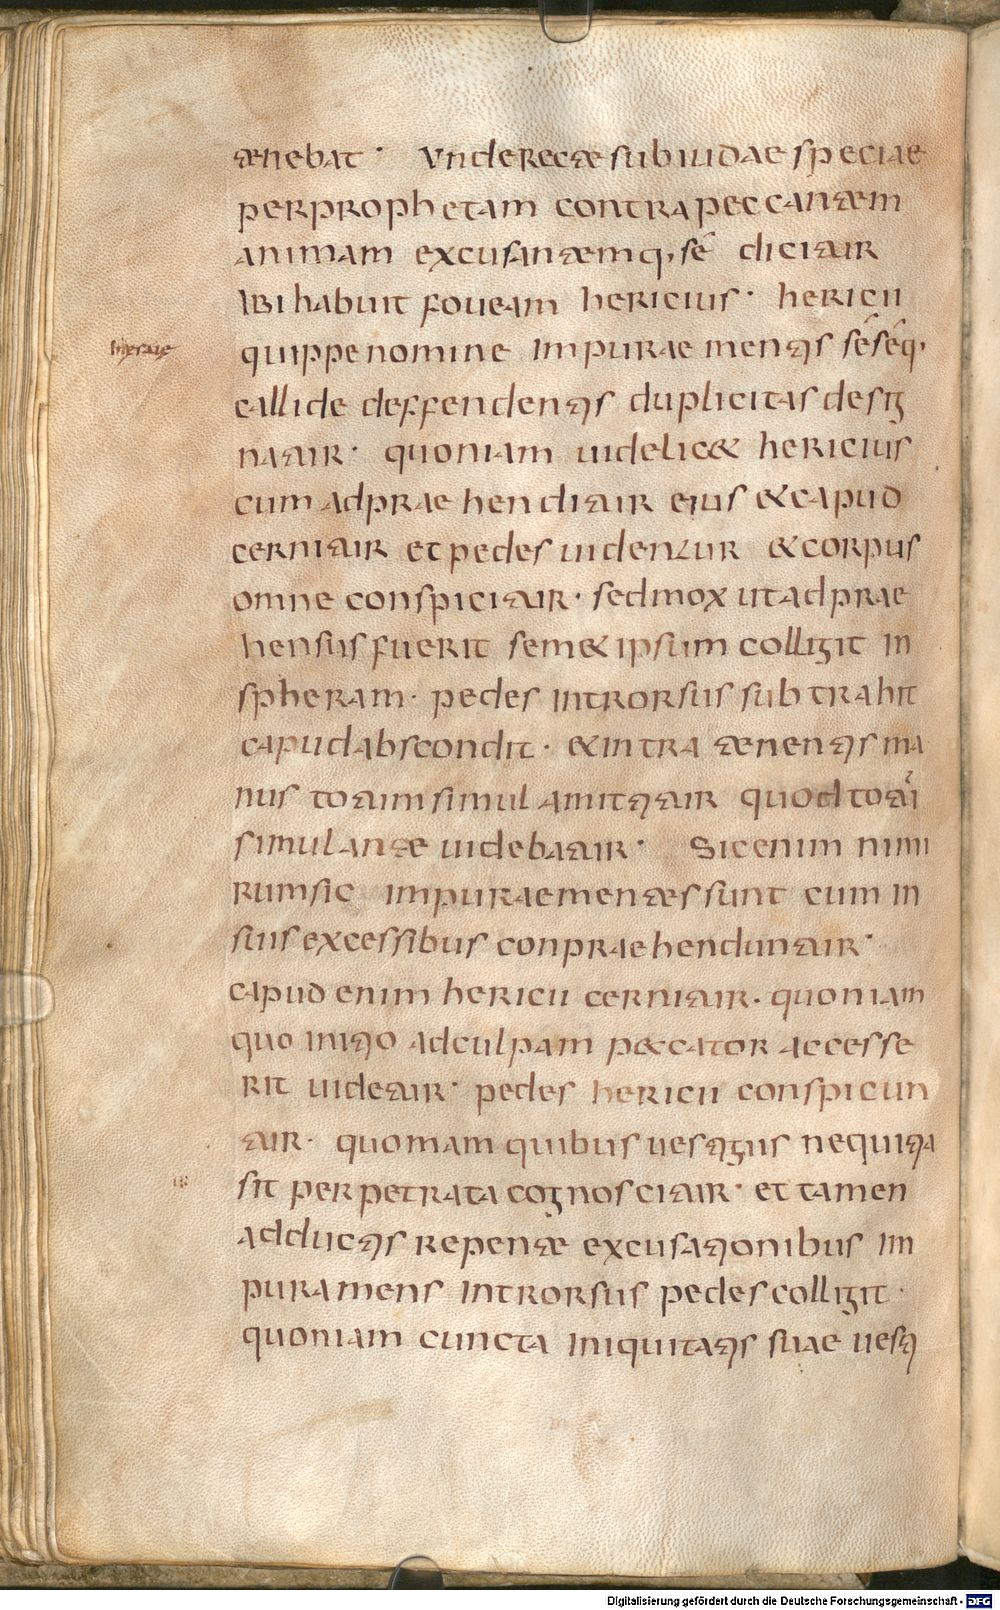 tenebat · Unde recte sub iudae speciae
per prophetam contra peccantem
animam excusantemq; sé dicitur
ibi habuit foueam hericius · hericii
quippe nomine impurae mentis sé séq;
callide deffendentis duplicitas desig
natur · quoniam uidelic& hericius
cum adpraehenditur eius & capud
cernitur et pedes uidentur & corpus
omne conspicitur · sed mox ut adprae
hensus fuerit sem&ipsum colligit in
spheram · pedes introrsus subtrahit
capud abscondit · & intra tenentis ma
nus totum simul amittitur quod totum
simul ante uidebatur · Sic enim nimi
rum sic impurae mentes sunt cum in
suis excessibus conpraehenduntur ·
capud enim hericii cernitur · quoniam
quo initio ad culpam peccator accesse
rit uidetur · pedes hericii conspicun
tur · quoniam quibus uestigiis nequitia
sit perpetrata cognoscitur · et tamen
adductis repente excusationibus im
pura mens introrsus pedes colligit ·
quoniam cuncta iniquitatis suae uesti